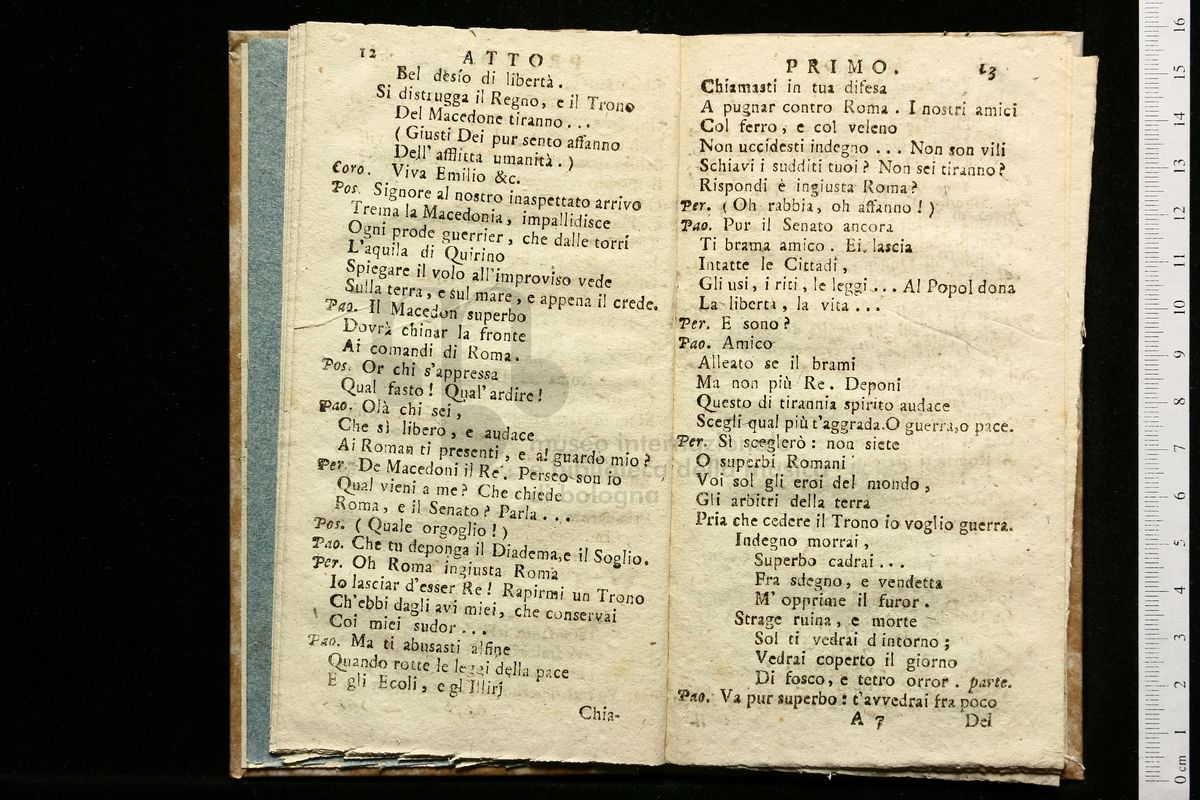 12 ATTO
Bel desio di libertà.
Si distrugga il Regno, e il Trono
Del Macedone tiranno...
(Giusti Dei pur sento affanno
Dell'afflitta umanità.)
Coro. Viva Emilio &c.
Pos. Signore al nostro inaspettato arrivo
Trema la Macedonia, impallidisce
Ogni prode guerrier, che dalle torri
L'aquila di Quirino
Spiegare il volo all'improviso vede
Sulla terra, e sul mare, e appena il crede.
Pao. Il Macedon superbo
Dovrà chinar la fronte
Ai comandi di Roma.
Pos. Or chi s'appressa
Qual fasto! Qual'ardire!
Pao. Olà chi sei,
Che sì libero, e audace
Ai Roman ti presenti, e al guardo mio?
Per. De Macedoni il Re. Perseo son io
Qual vieni a me? Che chiede
Roma, e il Senato? Parla...
Pos. (Quale orgoglio!)
Pao. Che tu deponga il Diadema,e il Soglio.
Per. Oh Roma ingiusta Roma
Io lasciar d'esser Re! Rapirmi un Trono
Ch'ebbi dagli avi miei, che conservai
Coi miei sudor...
Pao. Ma ti abusasti alfine
Quando rotte le leggi della pace
E gli Ecoli, e gl'Illirj
Chia-
PRIMO. 13
Chiamasti in tua difesa
A pugnar contro Roma. I nostri amici
Col ferro, e col veleno
Non uccidesti indegno... Non son vili
Schiavi i sudditi tuoi? Non sei tiranno?
Rispondi è ingiusta Roma?
Per. (Oh rabbia, oh affanno!)
Pao. Pur il Senato ancora
Ti brama amico. Ei lascia
Intatte le Cittadi,
Gli usi, i riti, le leggi... Al Popol dona
La libertà, la vita...
Per. E sono?
Pao. Amico
Alleato se il brami
Ma non più Re. Deponi
Questo di tirannia spirito audace
Scegli qual più t'aggrada.O guerra,o pace.
Per. Sì sceglerò: non siete
O superbi Romani
Voi sol gli eroi del mondo,
Gli arbitri della terra
Pria che cedere il Trono io voglio guerra.
Indegno morrai,
Superbo cadrai...
Fra sdegno, e vendetta
M'opprime il furor.
Strage ruina, e morte
Sol ti vedrai d'intorno;
Vedrai coperto il giorno
Di fosco, e tetro orror. parte.
Pao. Va pur superbo: t'avvedrai fra poco
A 7 Del
museo internazionale
e biblioteca della musica
di bologna
0 cm 1 2 3 4 5 6 7 8 9 10 11 12 13 14 15 16